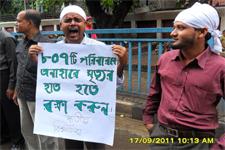 ৮০৭টি পরিবারকে
অনাহারে মৃত্যুর
হাত হতে
রক্ষা করুন
17/09/2011 10:13 AM